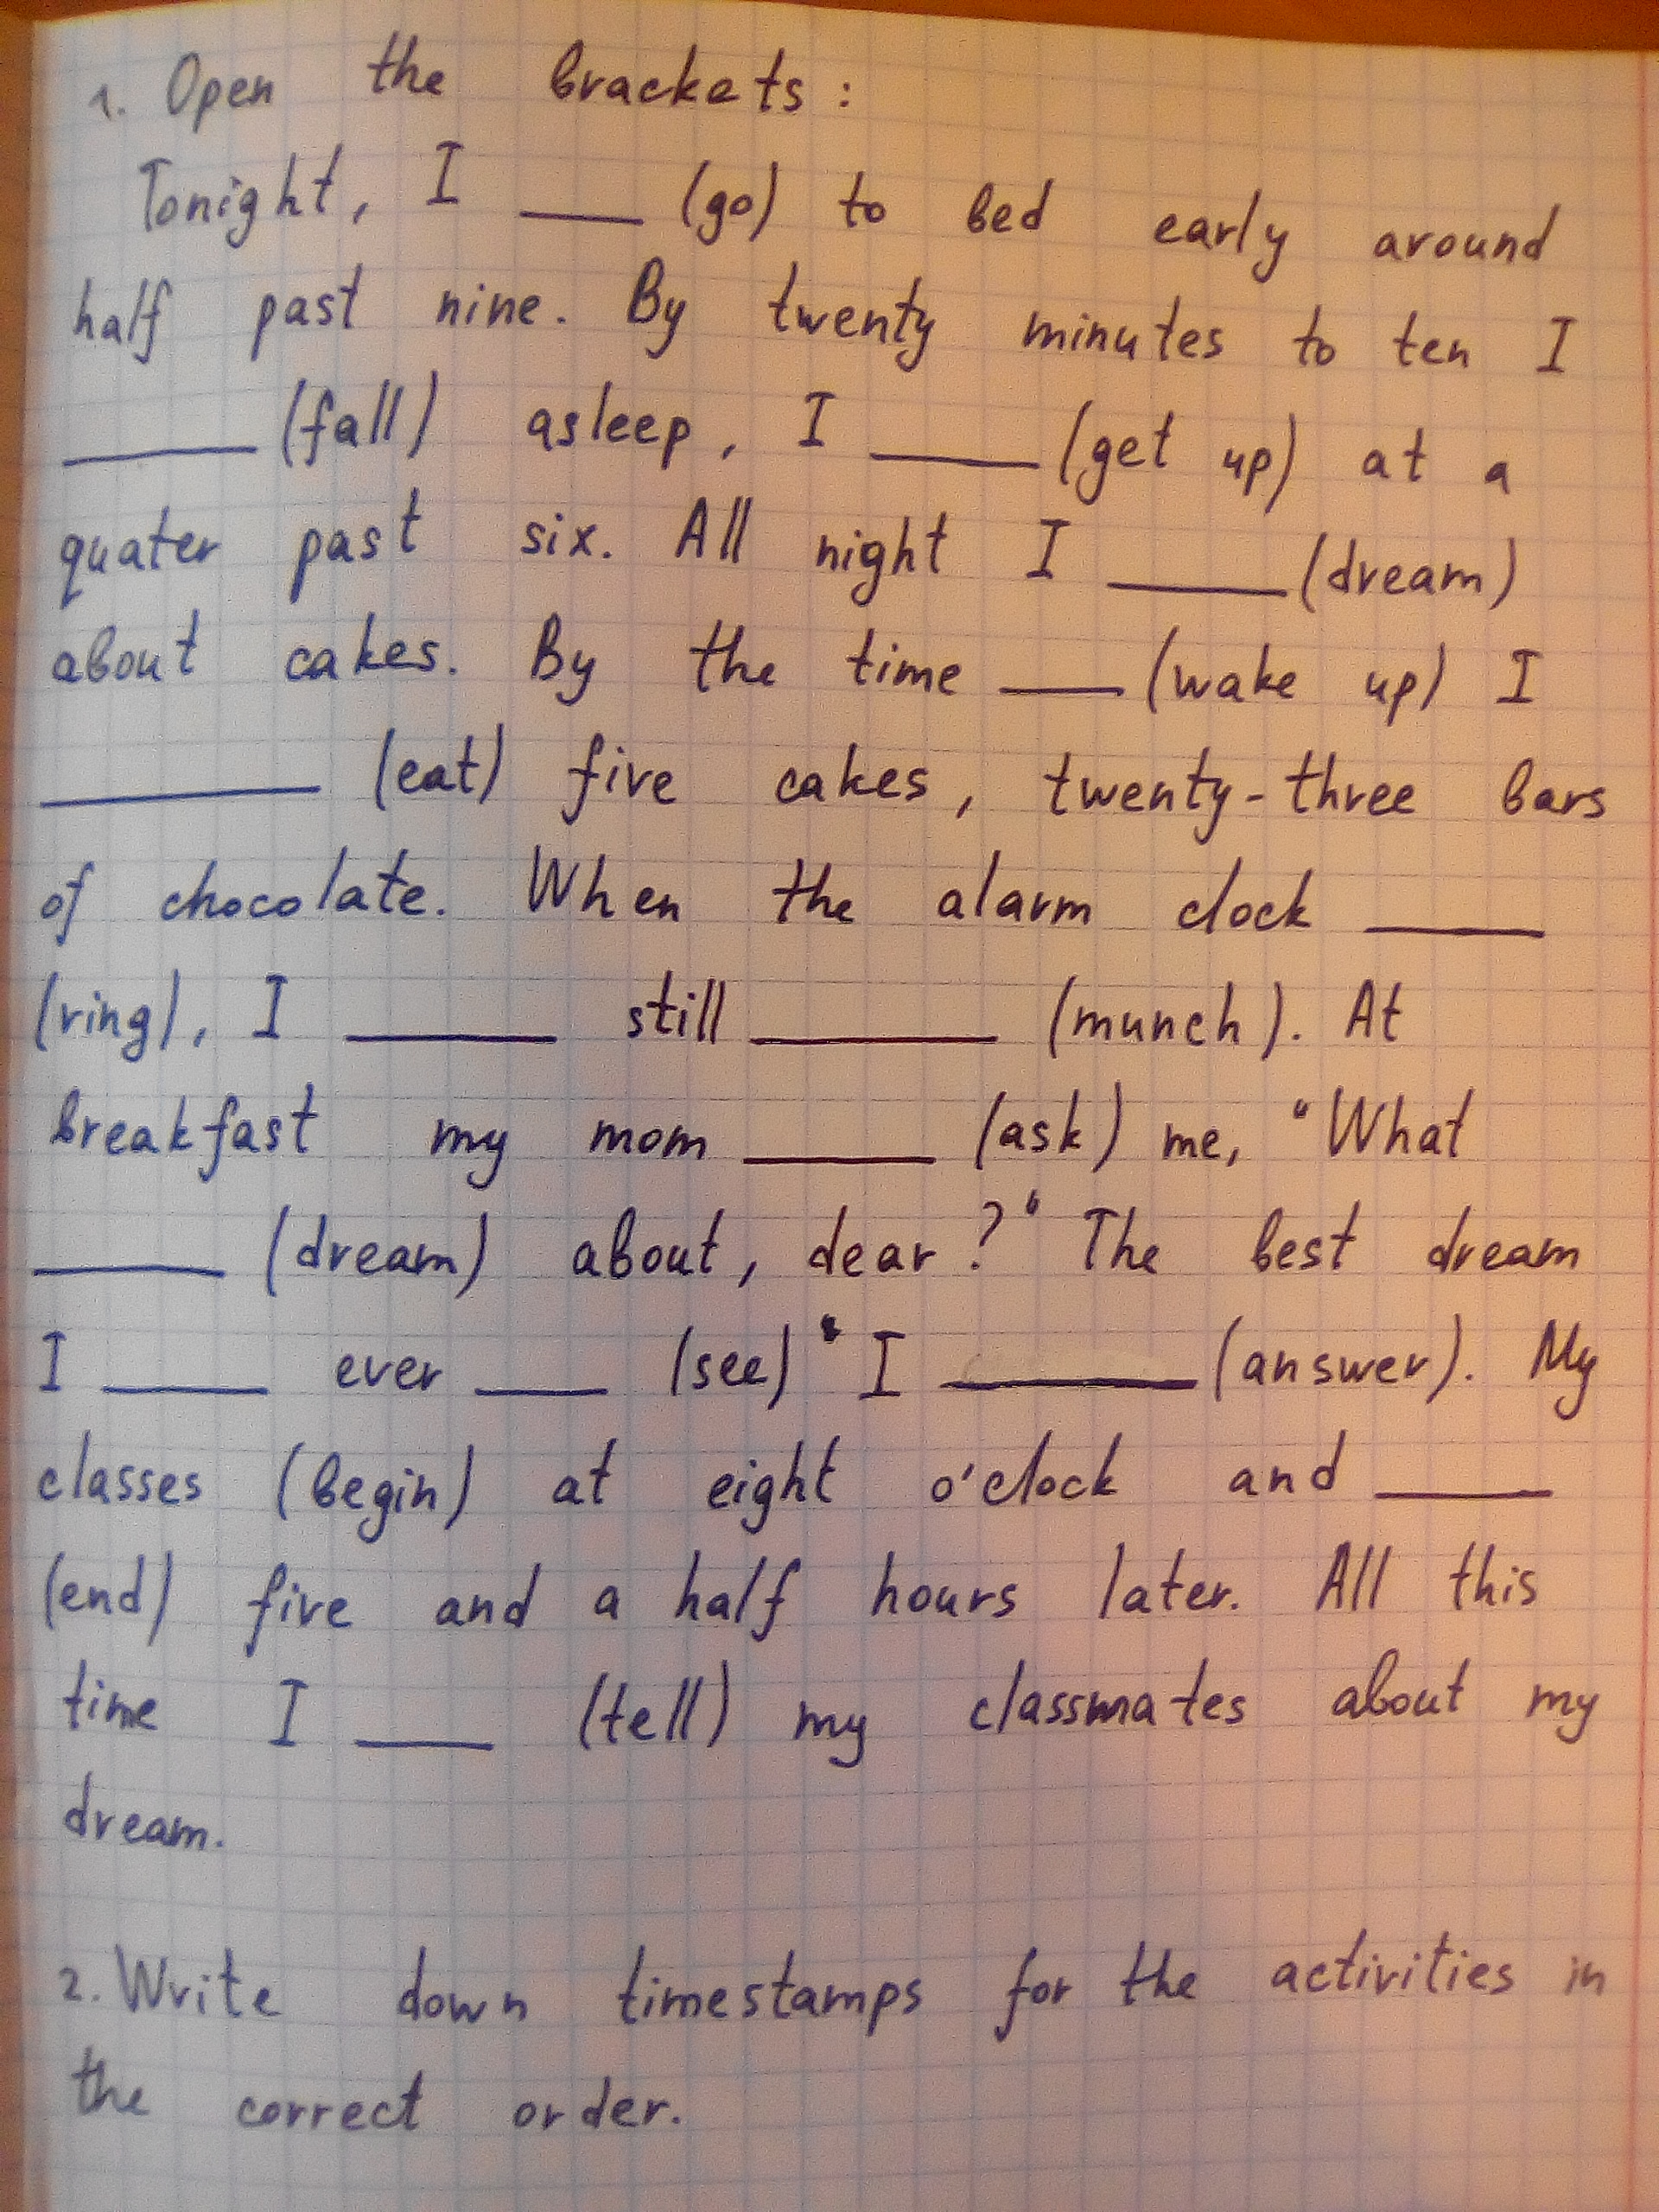 1. Open the brackets:
Tonight, I ___ (go) to bed early around
half past nine. By twenty minutes to ten I
___ (fall) asleep, I ___ (get up) at a
quater past six. All night I ___ (dream)
about cakes. By the time ___ (wake up) I
___ (eat) five cakes, twenty-three bars
of chocolate. When the alarm clock ___
(ring), I ___ still ___ (munch). At
breakfast my mom ___ (ask) me, "What
___ (dream) about, dear?" The best dream
I ___ ever ___ (see)" I ___ (answer). My
classes (begin) at eight o'clock and ___
(end) five and a half hours later. All this
time I ___ (tell) my classmates about my
dream.
2. Write down timestamps for the activities in
the correct order.